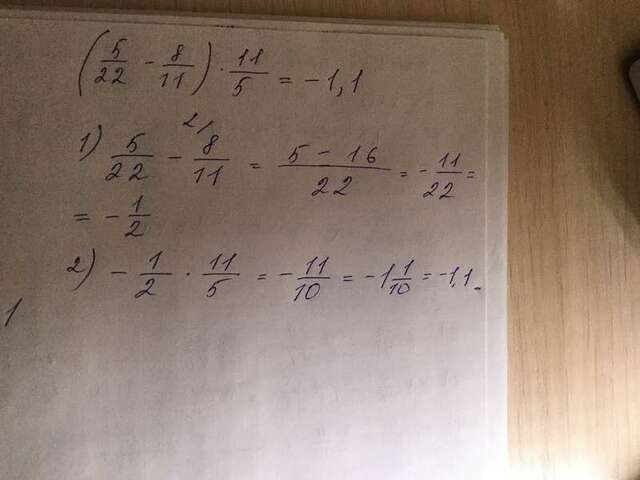 (5/22 - 8/11) · 11/5 = -1,1
1) 5/22 - 2\ 8/11 = 5-16/22 = -11/22 =
= -1/2
2) -1/2 · 11/5 = -11/10 = -1 1/10 = -1,1.
1